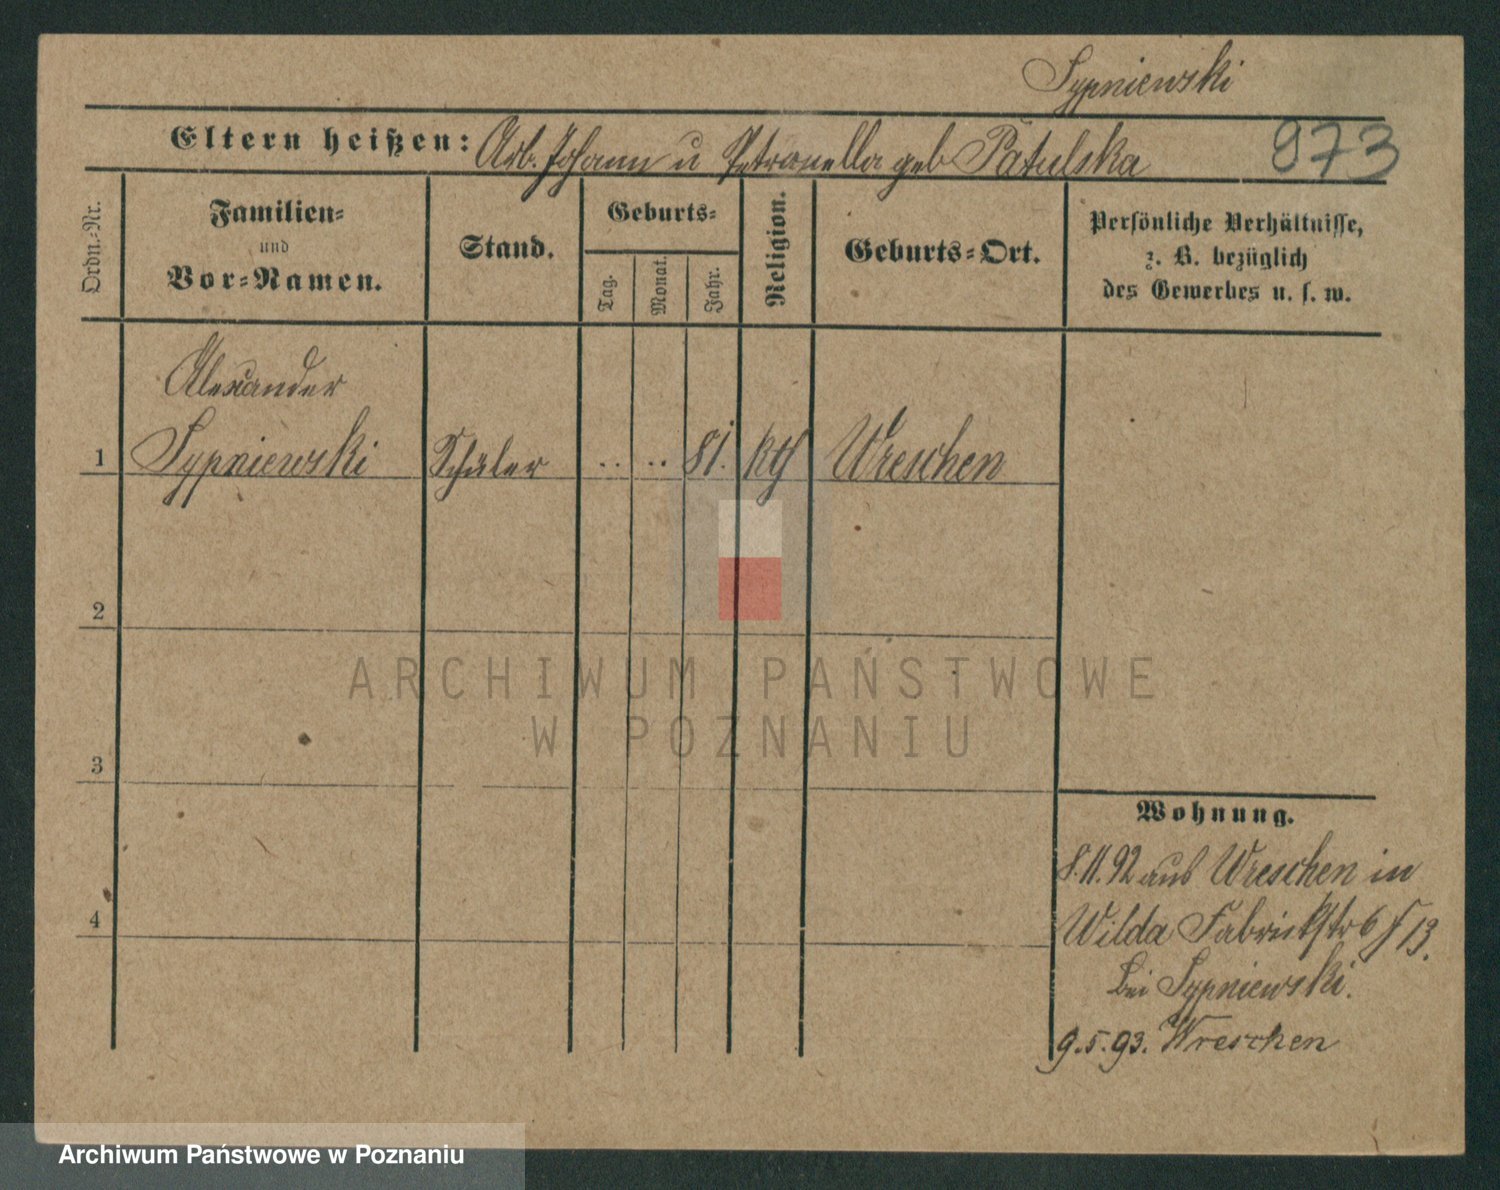 Sypniewski
Eltern heißen: Arb. Johann u Petronella geb Patulska
973
Ordn.-Nr.
Familien-
und
Vor-Namen.
Stand.
Geburts-
Tag.
Monat.
Jahr.
Religion.
Geburts-Ort.
Persönliche Verhältnisse,
z. B. bezüglich
des Gewerbes u. s. w.
Alexander
1 Sypniewski Schüler .. .. 81. kth Wreschen
2
3
4
Wohnung.
8.11.92 aus Wreschen in
Wilda Fabrikstr 6 / 13.
bei Sypniewski.
9.5.93. Wreschen
ARCHIWUM PAŃSTWOWE
W POZNANIU
Archiwum Państwowe w Poznaniu